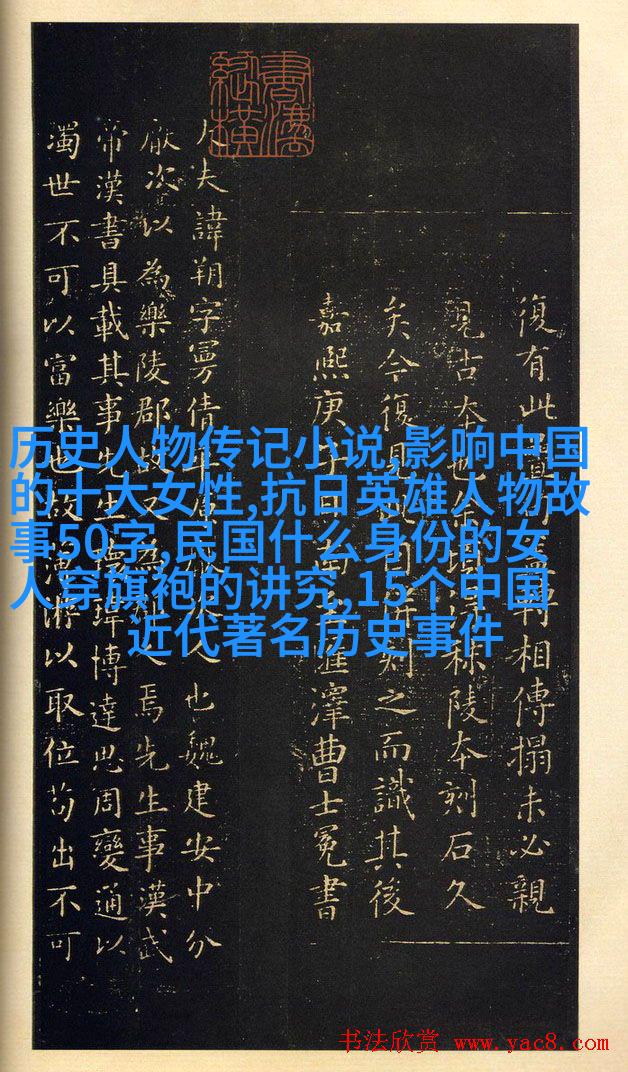 历史人物传记小说,影响中国
的十大女性,抗日英雄人物故
事50字,民国什么身份的女
人穿旗袍的讲究,15个中国
近代著名历史事件
復有此相傳搨未必親
見古本也秣陵本刻石久
矣今復見刻之而識其後
嘉熙庚子澤曹士冕書
大夫諱朔字曼倩人也魏建安中分
厭次以為樂陵郡故又為人焉先生事漢武
帝漢書具載其事先生瓌瑋博達思周變通以
濁世不可以富樂也故薄遊以取位苟出不可
书法欣赏 www.yac8.com